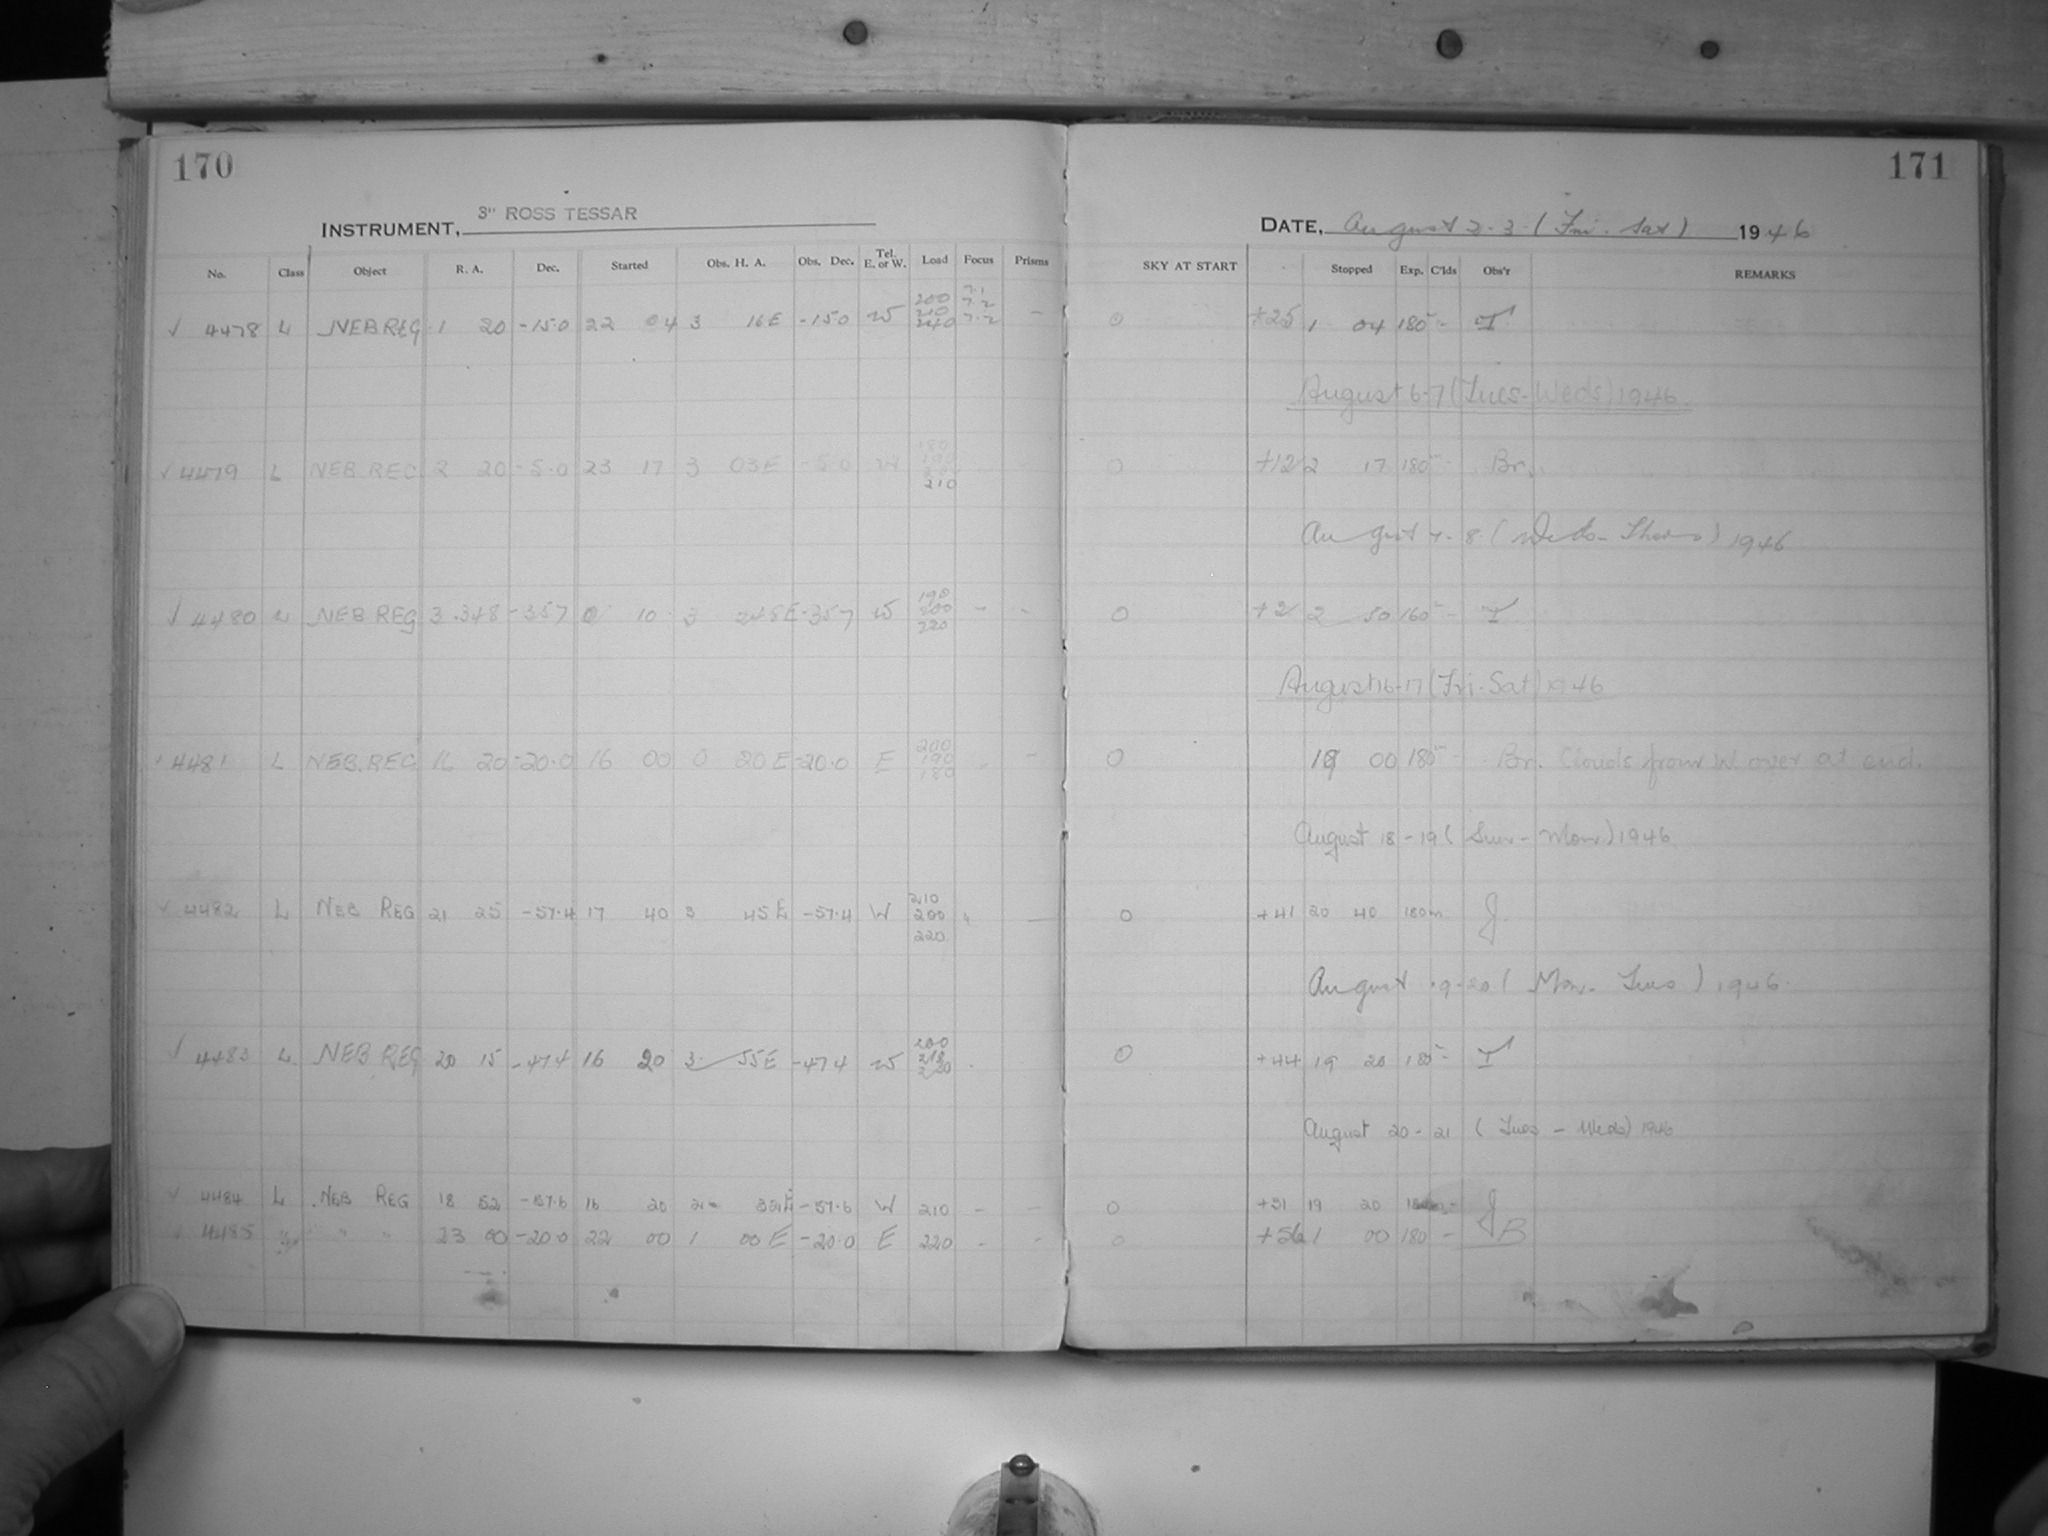 170
INSTRUMENT, 3" ROSS TESSAR
No. Class Object R. A. Dec. Started Obs. H. A. Obs. Dec. Tel. E. or W. Load Focus Prisms
✓ 4478 L NEB REG 1 20 -15.0 22 04 3 16 E -15.0 W 200 210 240 7.1 7.2 7.2 -
✓ 4479 L NEB. REG 2 20 -5.0 23 17 3 03 E -5.0 W 180 190 210
✓ 4480 L NEB REG 3 34.8 -35.7 0 10 3 24.8 E -35.7 W 190 200 220 - -
✓ 4481 L NEB. REG 16 20 -20.0 16 00 0 20 E -20.0 E 200 190 180 - -
✓ 4482 L NEB REG 21 25 -57.4 17 40 3 45 E -57.4 W 210 200 220 -
✓ 4483 L NEB REG 20 15 -47.4 16 20 3 55 E -47.4 W 200 210 220
✓ 4484 L NEB REG 18 52 -57.6 16 20 2 32 E -57.6 W 210 - -
✓ 4485 " " " 23 00 -20.0 22 00 1 00 E -20.0 E 220 - -
171
DATE, August 2-3 (Fri. Sat) 1946
SKY AT START Stopped Exp. C'lds Obs'r REMARKS
0 +25 1 04 180 - T
August 6-7 (Tues-Weds) 1946.
0 +12 2 17 180 - Br.
August 7-8 (Weds-Thurs) 1946
0 +2 2 50 160 - T
August 16-17 (Fri-Sat) 1946
0 19 00 180 - Br. Clouds from W. over at end.
August 18-19 (Sun-Mon.) 1946
0 +41 20 40 180m J.
August 19-20 (Mon. Tues) 1946.
0 +44 19 20 180 - T
August 20-21 (Tues-Weds) 1946
0 +31 19 20 180m - J
0 +56 1 00 180 - B